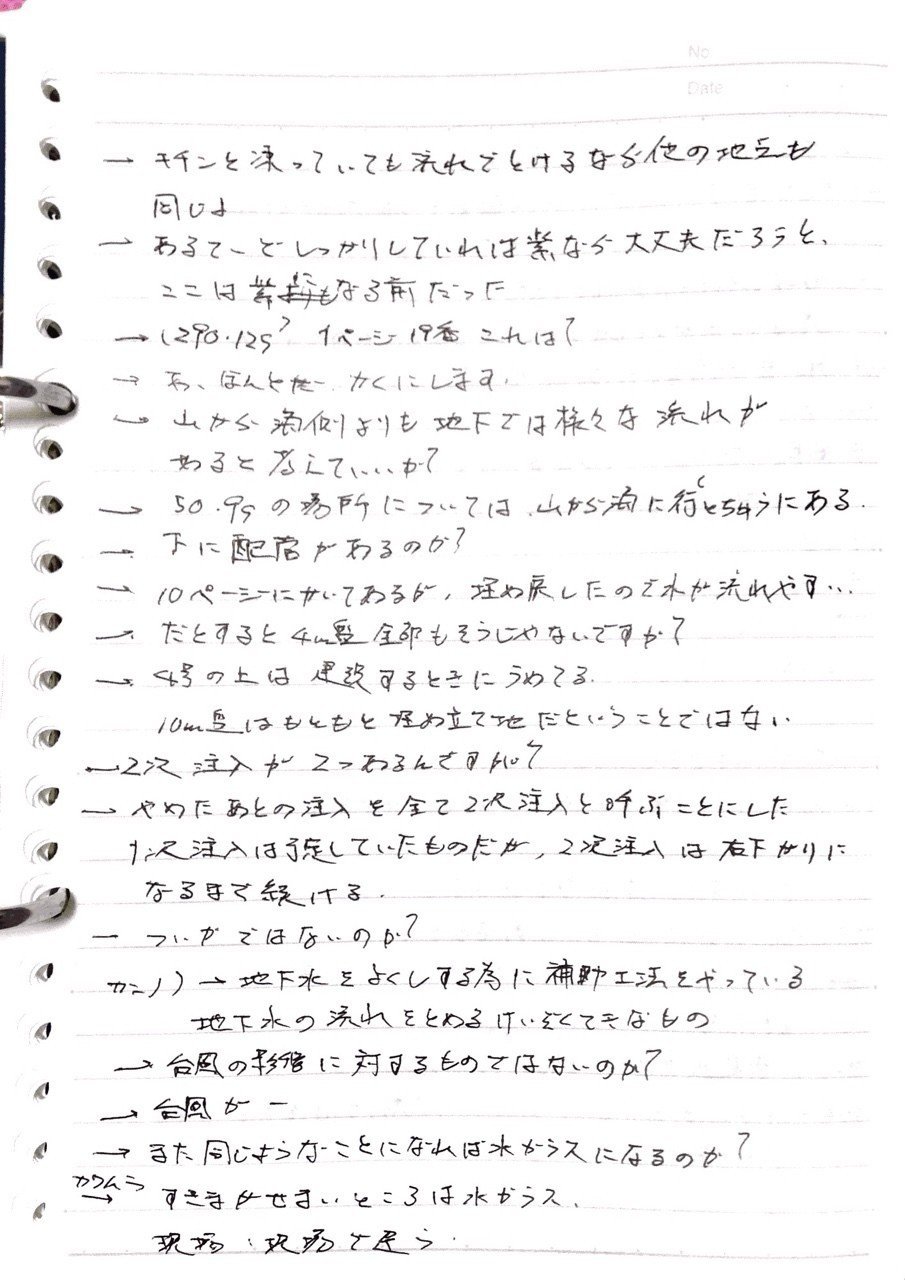 No
Date
→ キチンと凍っていても流れでとけるなら他の地点も
同じよ
→ あるてーどしっかりしていれば紫なら大丈夫だろうと、
ここは紫になる前だった
→ 1ページ 19番 これは?
→ あ、ほんとだ かくにします.
→ 山から海側よりも地下では様々な流れが
あると考えていいか?
→ 50.9s の場所については、山から海に行くとちゅうにある.
→ 下に配管があるのか?
→ 10ページにかいてあるが、埋め戻したので水が流れやす…
→ だとすると 4m盤全部もそうじゃないですか?
→ 4号の上は 建設するときにうめてる.
10m盤はもともと埋め立て地だということではない
→ 2次注入が2つあるんですか?
→ やめたあとの注入を全て2次注入と呼ぶことにした
1次注入は予定していたものだが、2次注入は右下がりに
なるまで続ける.
― ついかではないのか?
→ 地下水をよくしする為に補助工法をやっている
地下水の流れをとめるけいぞくてきなもの
→ 台風の影響に対するものではないのか?
→ 台風が ―
→ また同じようなことになれば水ガラスになるのか?
カワムラ
→ すきまがせまいところは水ガラス.
現場、現場で違う.